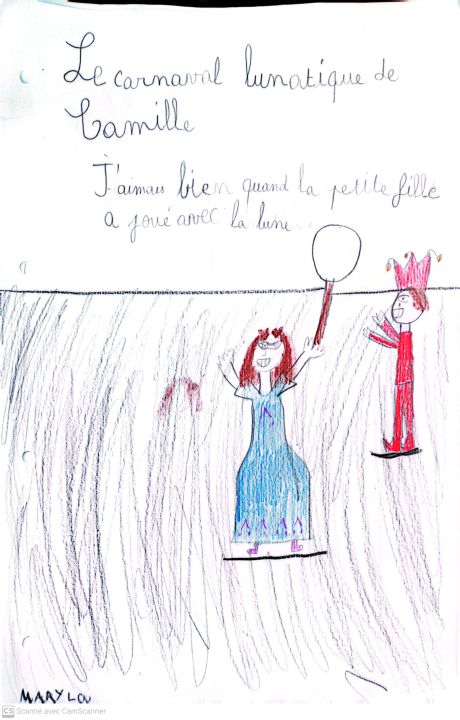 Le carnaval lunatique de
Camille
J'aimais bien quand la petite fille
a joué avec la lune.
MARYLOU
CS Scanné avec CamScanner